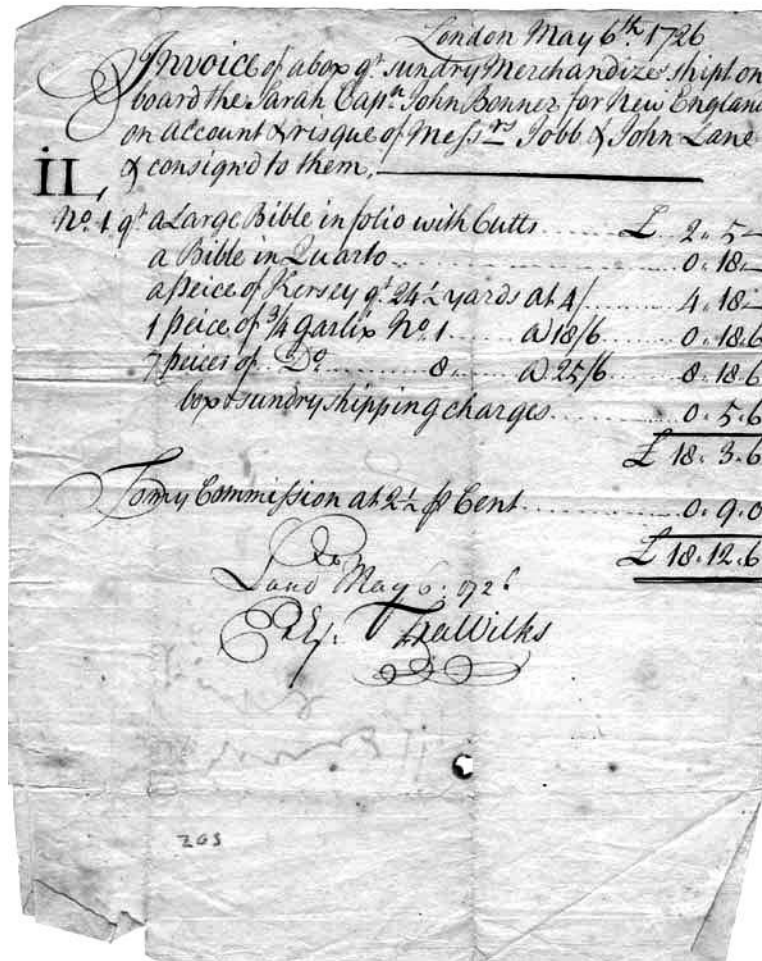 London May 6th. 1726
Invoice of a box qt. sundry Merchandize shipt on
board the Sarah Capth. John Bonner for New England
on account & risque of Messrs Jobb & John Lane
& consign'd to them.
IL
No. 1 qt a Large Bible in folio with Cutts £ 2. 5 —
a Bible in Quarto 0. 18. —
a peice of Kersey qt 24½ yards at 4/ 4. 18 —
1 peice of ¾ Garlix No. 1 a) 18/6 0. 18. 6
7 peices of Do 8 a) 25/6 8. 18. 6
box & sundry shipping charges 0. 5. 6
£ 18. 3. 6
To my Commission at 2½ p Cent 0. 9. 0
£ 18. 12. 6
May 6. 1726
Wilks
203